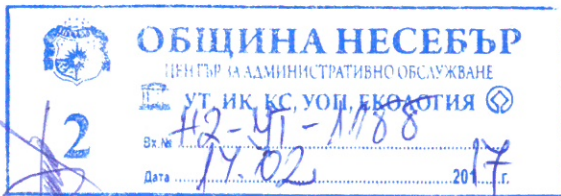 ОБЩИНА НЕСЕБЪР
ЦЕНТЪР ЗА АДМИНИСТРАТИВНО ОБСЛУЖВАНЕ
УТ, ИК, КС, УОП, ЕКОЛОГИЯ
2
Вх.№ Н2-УТ-1188
Дата 14.02. 2017 г.